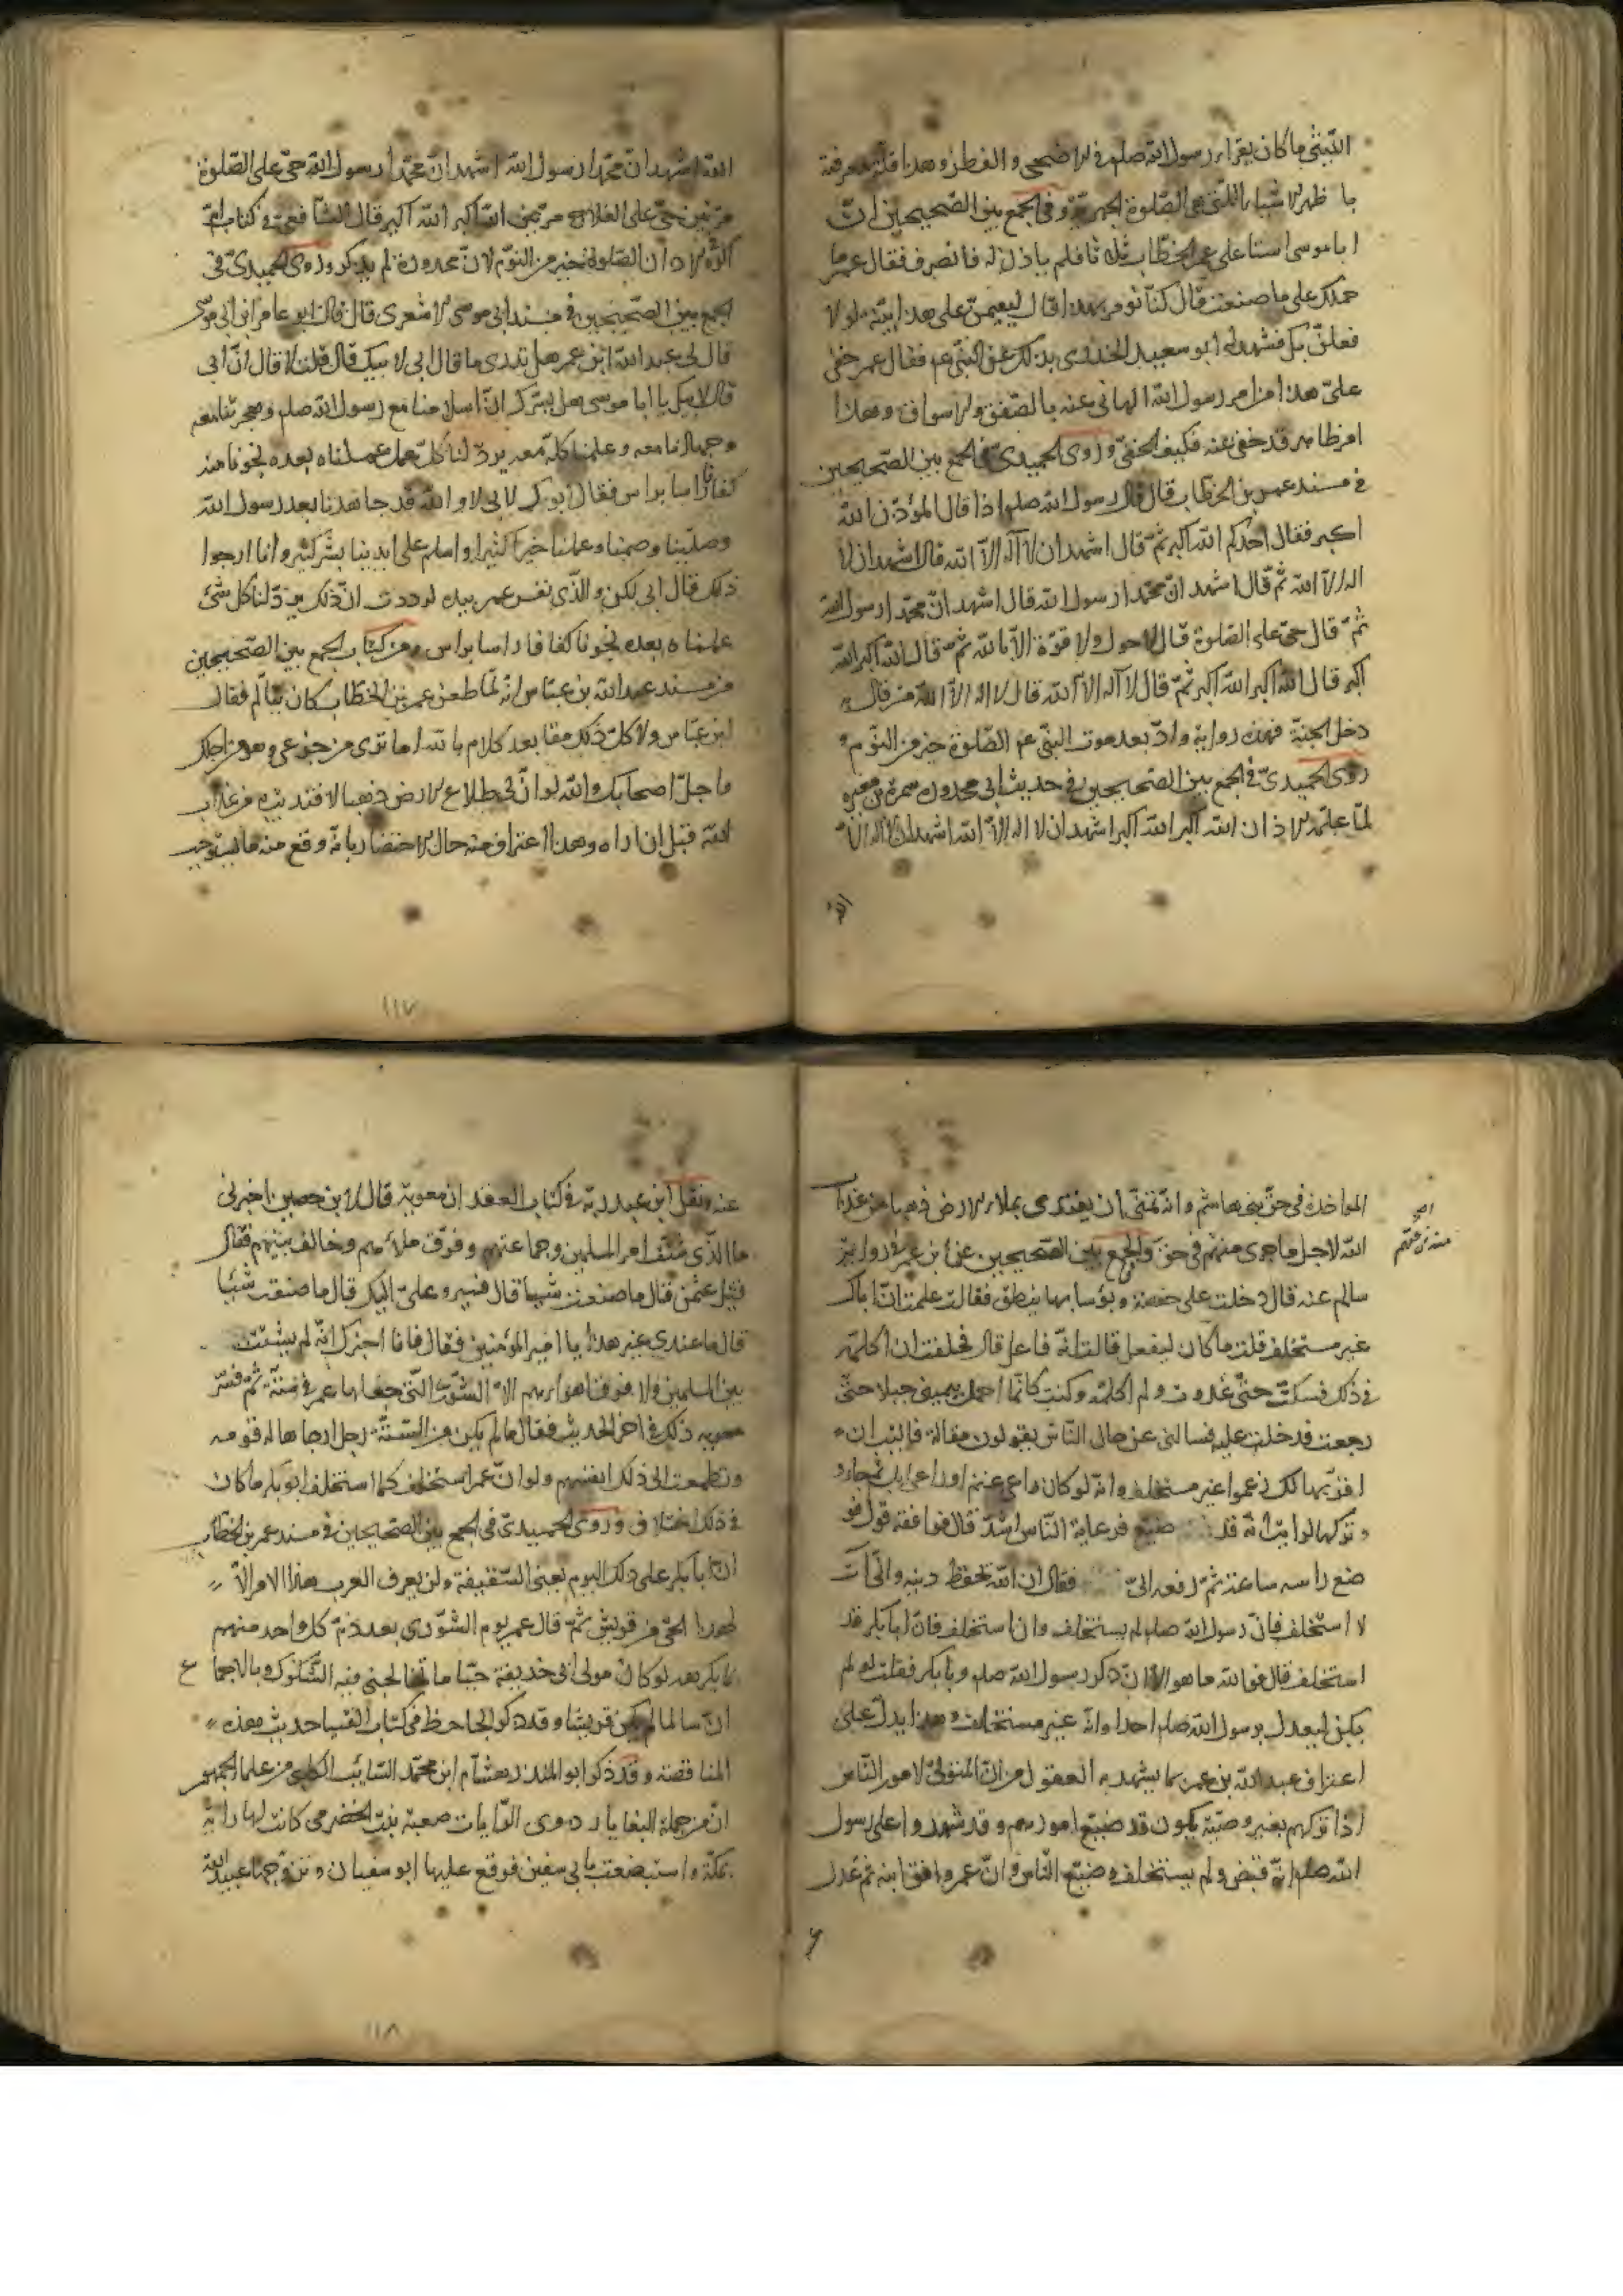 النبي ما كان يقرا به رسول الله صلم في الاضحى والفطر وهذا قلة معرفة
باظهر الاشياء التي هي الصلوة الجهرية وفي الجمع بين الصحيحين ان
ابا موسى استاذ على عمر بن الخطاب ثلاثا فلم ياذن له فانصرف فقال عمر ما
حملك على ما صنعت قال كنا نؤمر بهذا قال لتقيمن على هذا بينة او لا
فعلن بك فشهد له ابو سعيد الخدري بذلك عن النبي عم فقال عمر خفى
علي هذا من امر رسول الله الهاني عنه بالصفق والاسواق وهذا
امر ظاهر قد خفى عنه فكيف الخفي وروى الحميدي في الجمع بين الصحيحين
في مسند عمر بن الخطاب قال قال رسول الله صلم اذا قال المؤذن الله
اكبر فقال احدكم الله اكبر ثم قال اشهد ان لا اله الا الله قال اشهد ان لا
اله الا الله ثم قال اشهد ان محمدا رسول الله قال اشهد ان محمدا رسول الله
ثم قال حي على الصلوة قال لا حول ولا قوة الا بالله ثم قال الله اكبر الله
اكبر قال الله اكبر الله اكبر ثم قال لا اله الا الله قال لا اله الا الله من قال
دخل الجنة فهذه رواية وزاد بعد موت النبي عم الصلوة خير من النوم
روى الحميدي في الجمع بين الصحيحين في حديث ابي محذورة سمرة بن معير
لما علمه الاذان الله اكبر الله اكبر اشهد ان لا اله الا الله اشهد ان لا اله الا
الله
الله اشهد ان محمدا رسول الله اشهد ان محمدا رسول الله حي على الصلوة
مرتين حي على الفلاح مرتين الله اكبر الله اكبر قال الشافعي في كتاب
اكره في الاذان الصلوة خير من النوم لان محذورة لم يذكر وروى الحميدي في
الجمع بين الصحيحين في مسند ابي موسى الاشعري قال قال ابو عامر ابن ابي موسى
قال لي عبد الله ابن عمر هل تدري ما قال ابي لابيك قال قلت لا قال ان ابي
قال لابيك يا ابا موسى هل يسرك ان اسلامنا مع رسول الله صلم وهجرتنا معه
وجهادنا معه وعلمنا كله معه يرد لنا كل عمل عملناه بعده نجونا منه
كفافا راسا براس فقال ابوك لابي لا والله قد جاهدنا بعد رسول الله
وصلينا وصمنا وعملنا خيرا كثيرا واسلم على ايدينا بشر كثير وانا ارجوا
ذلك قال ابي لكن والذي نفس عمر بيده لوددت ان ذلك يرد لنا كل شئ
علمناه بعده نجونا كفافا راسا براس ومن كتاب الجمع بين الصحيحين
من مسند عبد الله بن عباس انه لما طعن عمر بن الخطاب كان يتالم فقال
ابن عباس ولا كل ذلك فقا بعد كلام باتت اما ترى من جزعي وهو من اجلك
ما جل اصحابك والله لو ان لي طلاع الارض ذهبا لافتديت به من عذاب
الله قبل ان اراه وهذا اعتراف منه حال الاحتضار بانه وقع منه ما يستوجب
١١٧
المواخذة في حق بني هاشم وانه تمنى ان يفتدي بملاء الارض ذهبا من عذاب
الله لاجل ما جرى منهم في حق والجمع بين الصحيحين عن ابن عمر في رواية
سالم عنه قال دخلت على حفصة ونؤساتها ينطف فقالت علمت ان اباك
غير مستخلف قلت ما كان ليفعل قالت انه فاعل قال فحلفت ان اكلمه
في ذلك فسكت حتى غدوت ولم اكلمه وكنت كانما احمل بيميني جبلا حتى
رجعت فدخلت عليه فسالني عن حال الناس يقولون مقالة فاليت ان
اقولها لك زعموا غير مستخلف وانه لو كان راعي غنم او راعي ابل ثم جاء
وتركها لرايت انه قد ضيع فرعاية الناس اشد قال فوافقه قولي فو
ضع راسه ساعة ثم رفعه الي فقال ان الله يحفظ دينه واني ان
لا استخلف فان رسول الله صلم لم يستخلف وان استخلف فان ابا بكر قد
استخلف قال فوالله ما هو الا ان ذكر رسول الله صلم وبابكر فقلت لو لم
يكن ليعدل برسول الله صلم احدا وانه غير مستخلف وهذا يدل على
اعتراف عبد الله بن عمر بما يشهد به العقول من ان المتولي لامور الناس
اذا تركهم بغير وصية يكون قد ضيع امورهم وقد شهدوا على رسول
الله صلم انه قبض ولم يستخلف وضيع الناس وان عمر وافق ابنه ثم عدل
عنه ونقل ابن عبد ربه في كتاب العقد ان معوية قال لابن حصين اخبرني
ما الذي شتت امر المسلمين وجماعتهم وفرق ملاءهم وخالف بينهم فقال
قتل عثمن قال ما صنعت شيا قال فسير علي اليك قال ما صنعت شيا
قال ما عندي غير هذا يا امير المؤمنين فقال فانا اخبرك انه لم يشتت
بين المسلمين ولا فرق اهواءهم الا الشورى التي جعلها عمر في ستة ثم فسر
معوية ذلك في اخر الحديث فقال ما لم يكن من الستة رجل ارجاها له قومه
وتطلعت الى ذلك انفسهم ولو ان عمر استخلف كما استخلف ابو بكر ما كان
في ذلك اختلاف وروى الحميدي في الجمع بين الصحيحين في مسند عمر بن الخطاب
ان ابا بكر على ذلك اليوم يعني السقيفة ولن يعرف العرب هذا الامر الا
لهذا الحي من قريش ثم قال عمر يوم الشورى بعد ذم كل واحد منهم
بابكر بعد لو كان مولى ابي حذيفة حيا ما تخالجني فيه الشكوك وبالاجماع
ان سالما لم يكن قريشا وقد ذكر الجاحظ في كتاب الفتيا حديث هذه
المناقضة وقد ذكر ابو المنذر هشام ابن محمد السائب الكلبي من علماء الجمهور
ان من جملة البغايا وذوي الرايات صعبة بنت الحضرمي كانت لها راية
بمكة واستبضعت بابي سفين فوقع عليها ابو سفيان وتزوجها عبيد الله
١١٨